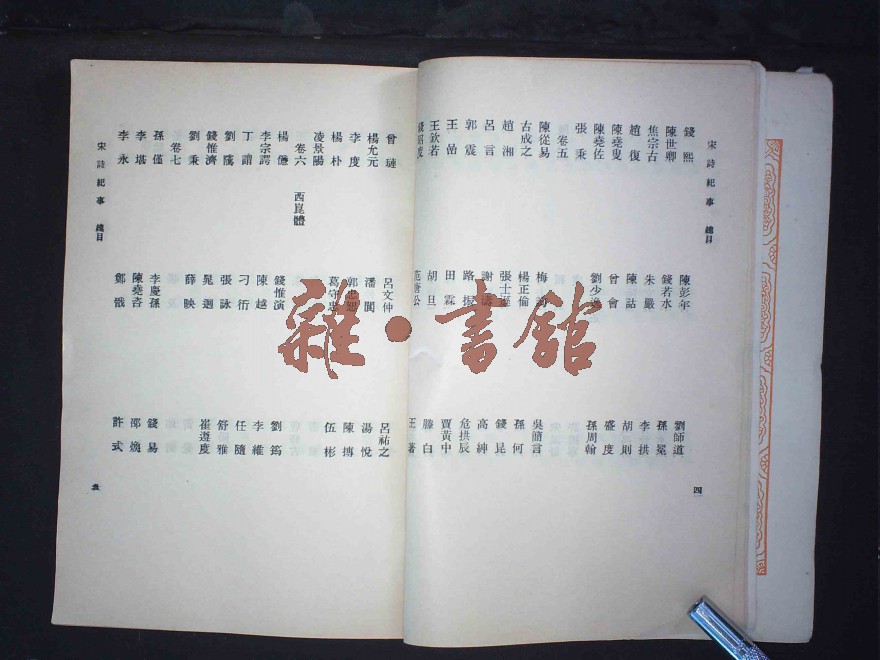 宋詩紀事 總目
錢熙 陳彭年 劉師道
陳世卿 錢若水 孫冕
焦宗古 朱嚴 李拱
趙復 陳詁 胡則
陳堯叟 曾會 盛度
陳堯佐 劉少逸 孫周翰
張秉
卷五
陳從易 梅詢 吳簡言
古成之 楊正倫 孫何
趙湘 張士遜 錢昆
呂言 謝濤 高紳
郭震 路振 危拱辰
王嵒 田霖 賈黃中
王欽若 胡旦 滕白
錢昭度 范唐公 王著
四
曾璉 呂文仲 呂祐之
楊允元 潘閬 湯悅
李度 郭忠恕 陳摶
楊朴 葛守忠 伍彬
凌景陽
卷六 西崑體
楊億 錢惟演 劉筠
李宗諤 陳越 李維
丁謂 刁衎 任隨
劉隲 張詠 舒雅
錢惟濟 晁迥 崔遵度
劉秉 薛映
卷七
孫僅 李慶孫 錢易
李堪 陳堯咨 邵煥
李永 鄭戩 許式
宋詩紀事 總目
五
雜·書館